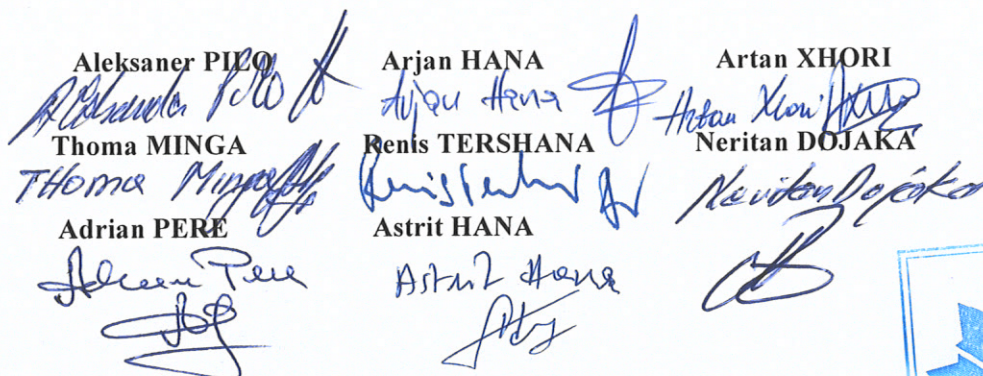 Aleksaner PILO Arjan HANA Artan XHORI
Aleksander Pilo Arjan Hana Artan Xhori
Thoma MINGA Renis TERSHANA Neritan DOJAKA
THoma Minga Neritan Dojaka
Adrian PERE Astrit HANA
Adrian Pere Astrit Hana